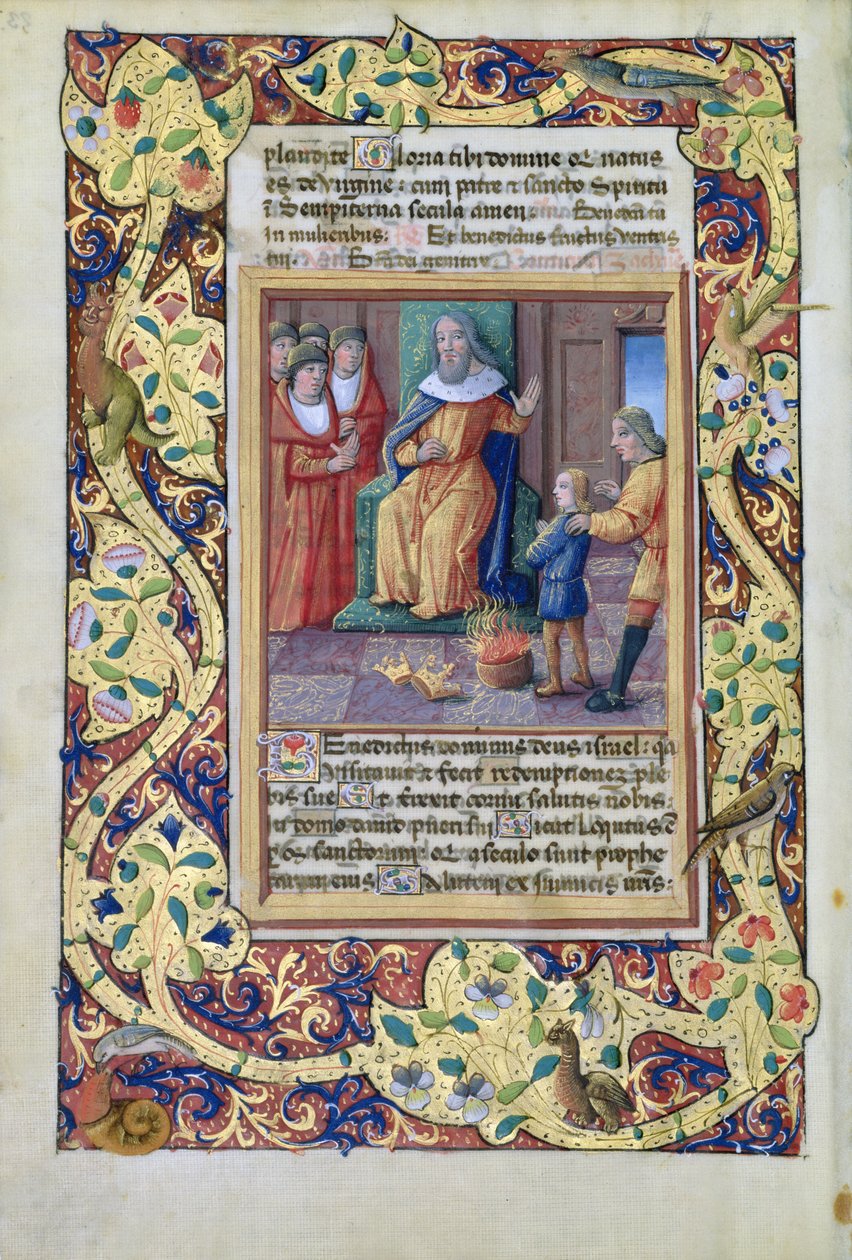 plaudite Gloria tibi domine Qui natus
es de virgine: cum patre et sancto Spiritu
ī Sempiterna secula amen: Benedicta
In mulieribus: Et benedictus fructus ventris
tui:
Benedictus dominus deus israel: qa
visitavit et fecit redemptionez ple
bis sue Et erexit cornu salutis nobis:
in domo david pueri sui Sicut Loqutus ē
sanctorum Qui a seculo sunt prophe
tarum eius Salutem ex inimicis nr̄is: